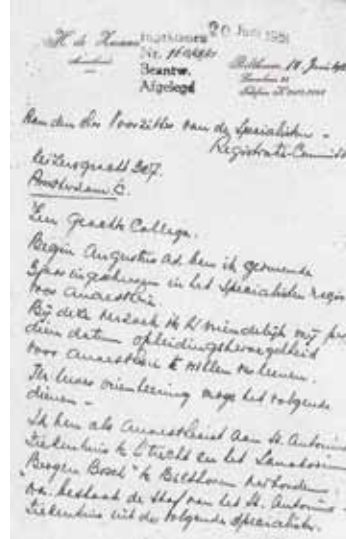 20 Juni 1951
H. de
Nr.
Bilthoven, 18 Juni
Beantw.
Afgelegd
Aan den Voorzitter van de Specialisten-
Registratie-Commissie
Keizersgracht 327.
Amsterdam C.
Zeer Geachte Collega.
Begin Augustus a.s. ben ik gedurende
3 jaar ingeschreven in het Specialisten regis
voor Anaesthesie.
Bij deze verzoek ik U vriendelijk mij per
dien datum opleidingsbevoegdheid
voor Anaesthesie te willen verleenen.
Ter Uwer orienteering moge het volgende
dienen -
Ik ben als Anaesthesist aan St. Antonius
Ziekenhuis te Utrecht en het Sanatorium
"Bergen Bosch" te Bilthoven verbonden.
bestaat de Staf van het St. Antonius-
Ziekenhuis uit de volgende specialisten.